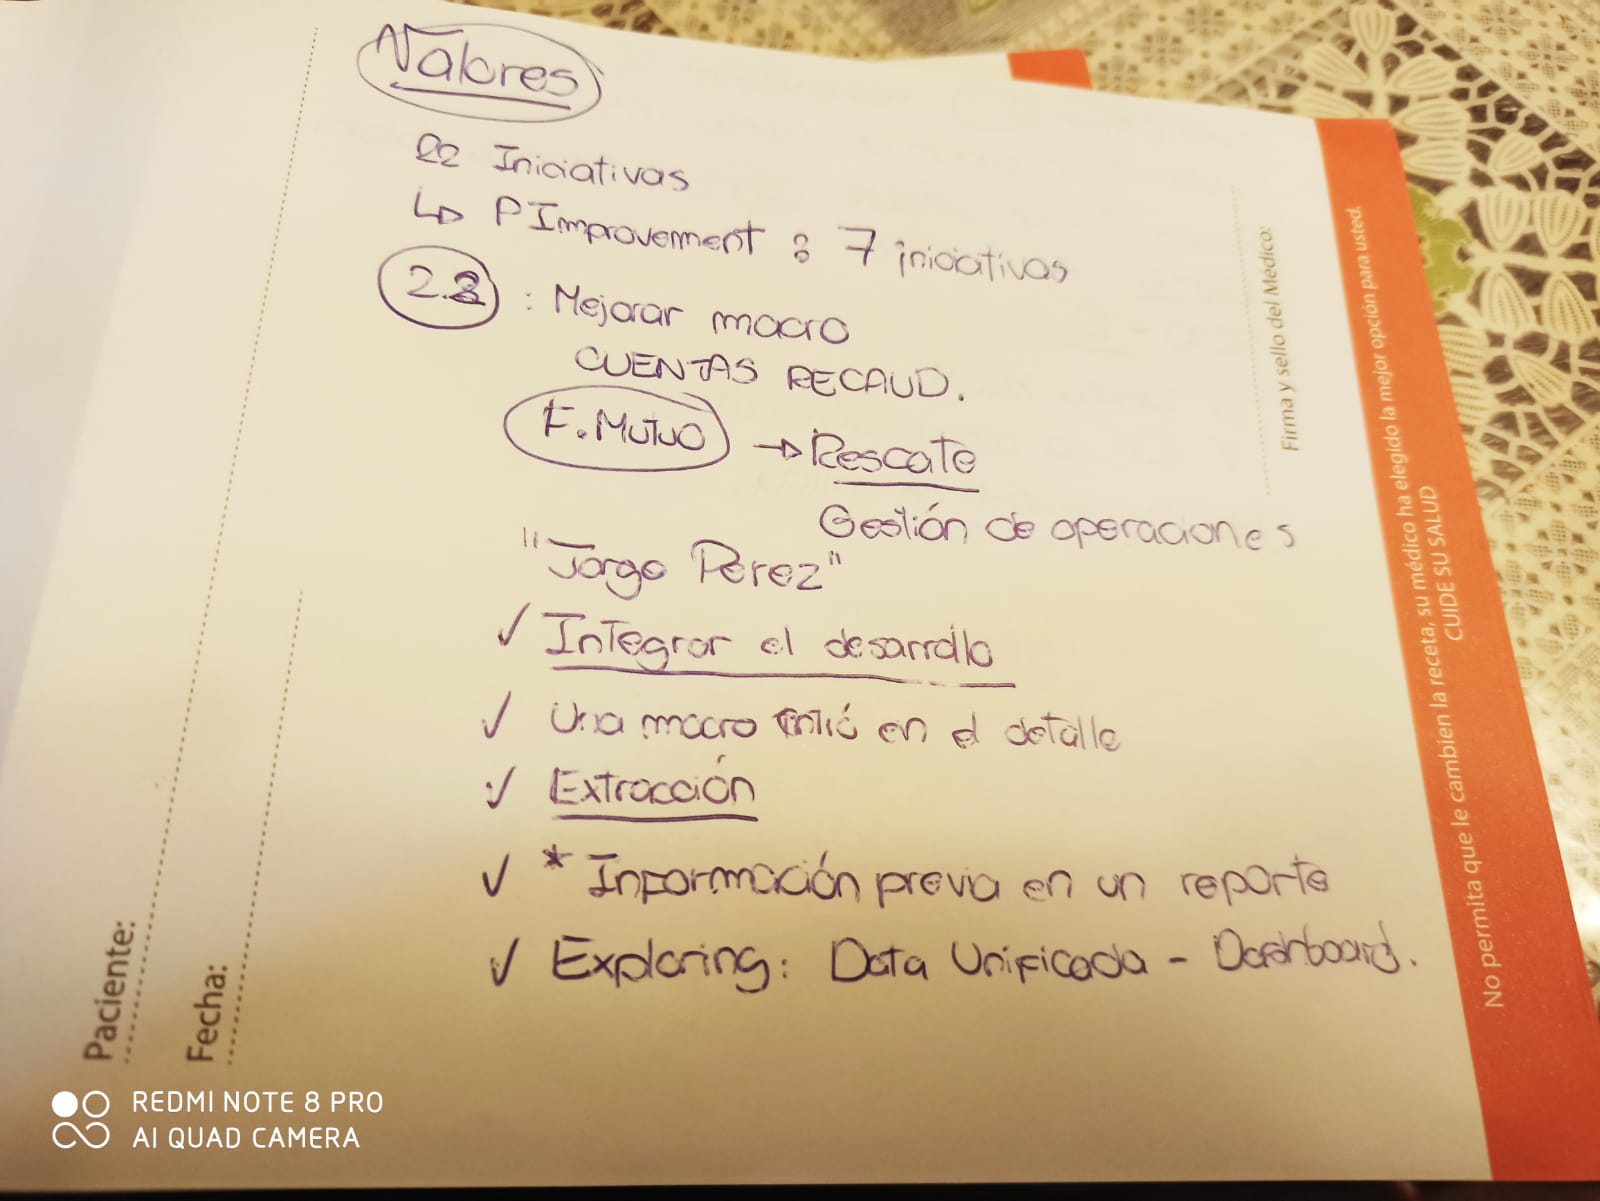 Valores
22 Iniciativas
↳ PImprovement : 7 iniciativas
: Mejorar macro
CUENTAS RECAUD.
F. MUTUO → Rescate
Gestión de operaciones
"Jorge Perez"
✓ Integrar el desarrollo
✓ Una macro en el detalle
✓ Extracción
✓ * Información previa en un reporte
✓ Exploring: Data Unificada - Dashboard.
Paciente:
Fecha:
Firma y sello del Médico:
No permita que le cambien la receta, su médico ha elegido la mejor opción para usted.
CUIDE SU SALUD
REDMI NOTE 8 PRO
AI QUAD CAMERA